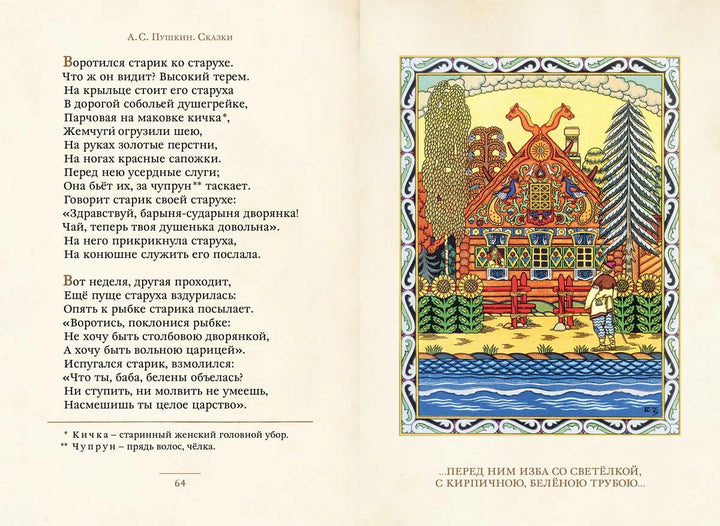 А.С. Пушкин. Сказки
Воротился старик ко старухе.
Что ж он видит? Высокий терем.
На крыльце стоит его старуха
В дорогой собольей душегрейке,
Парчовая на маковке кичка*,
Жемчуги огрузили шею,
На руках золотые перстни,
На ногах красные сапожки.
Перед нею усердные слуги;
Она бьёт их, за чупрун** таскает.
Говорит старик своей старухе:
«Здравствуй, барыня-сударыня дворянка!
Чай, теперь твоя душенька довольна».
На него прикрикнула старуха,
На конюшне служить его послала.
Вот неделя, другая проходит,
Ещё пуще старуха вздурилась:
Опять к рыбке старика посылает.
«Воротись, поклонися рыбке:
Не хочу быть столбовою дворянкой,
А хочу быть вольною царицей».
Испугался старик, взмолился:
«Что ты, баба, белены объелась?
Ни ступить, ни молвить не умеешь,
Насмешишь ты целое царство».
* Кичка – старинный женский головной убор.
** Чупрун – прядь волос, чёлка.
64
...ПЕРЕД НИМ ИЗБА СО СВЕТЁЛКОЙ,
С КИРПИЧНОЮ, БЕЛЁНОЮ ТРУБОЮ...